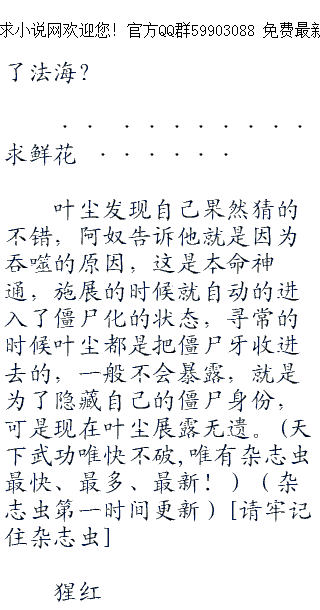 求小说网欢迎您! 官方QQ群59903088 免费最新
了法海?
. . . . . . . . . .
求鲜花 . . . . . .
叶尘发现自己果然猜的
不错,阿奴告诉他就是因为
吞噬的原因,这是本命神
通,施展的时候就自动的进
入了僵尸化的状态,寻常的
时候叶尘都是把僵尸牙收进
去的,一般不会暴露,就是
为了隐藏自己的僵尸身份,
可是现在叶尘展露无遗。(天
下武功唯快不破,唯有杂志虫
最快、最多、最新! )(杂
志虫第一时间更新)[请牢记
住杂志虫]
猩红